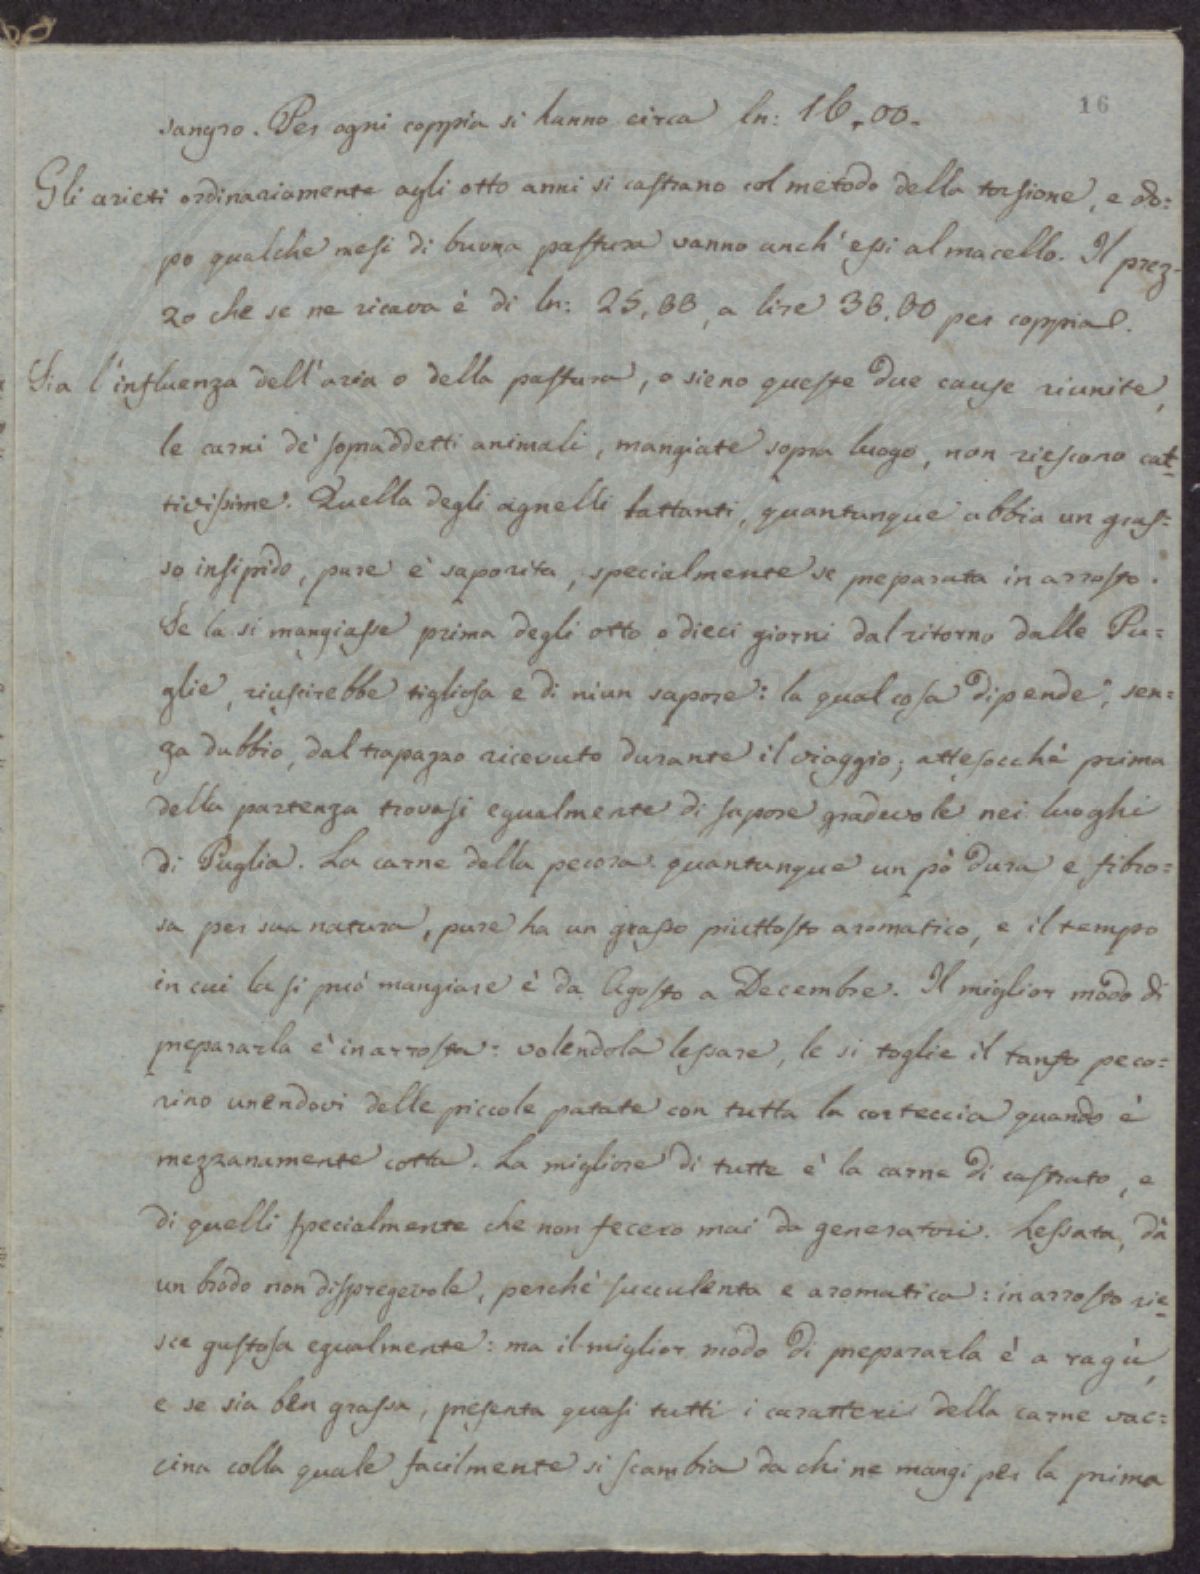 16
sangro. Per ogni coppia si hanno circa ln: 16,00.
Gli arieti ordinariamente agli otto anni si castrano col metodo della torsione, e do=
po qualche mesi di buona pastura vanno anch' essi al macello. Il prez-
zo che se ne ricava è di ln: 25,00, a lire 30,00 per coppia.
Sia l'influenza dell'aria o della pastura, o sieno queste due cause riunite,
le carni de' sopraddetti animali, mangiate sopra luogo, non riescono cat-
tivissime. Quella degli agnelli lattanti, quantunque abbia un gras=
so insipido, pure è saporita, specialmente se preparata in arrosto.
Se la si mangiasse prima degli otto o dieci giorni dal ritorno dalle Pu=
glie, riuscirebbe tigliosa e di niun sapore: la qual cosa dipende, sen=
za dubbio, dal trapazzo ricevuto durante il viaggio; attesocchè prima
della partenza trovasi egualmente di sapore gradevole nei luoghi
di Puglia. La carne della pecora quantunque un pò dura e fibro=
sa per sua natura, pure ha un grasso piuttosto aromatico, e il tempo
in cui la si può mangiare è da Agosto a Decembre. Il miglior modo di
prepararla è in arrosto: volendola lessare, le si toglie il tanfo peco=
rino unendovi delle piccole patate con tutta la corteccia quando è
mezzanamente cotta. La migliore di tutte è la carne di castrato, e
di quelli specialmente che non fecero mai da generatori. Lessata, dà
un brodo non dispregevole, perchè succulenta e aromatica: in arrosto rie-
sce gustosa egualmente: ma il miglior modo di prepararla è a ragù,
e se sia ben grassa, presenta quasi tutti i caratteri della carne vac=
cina colla quale facilmente si scambia da chi ne mangi per la prima